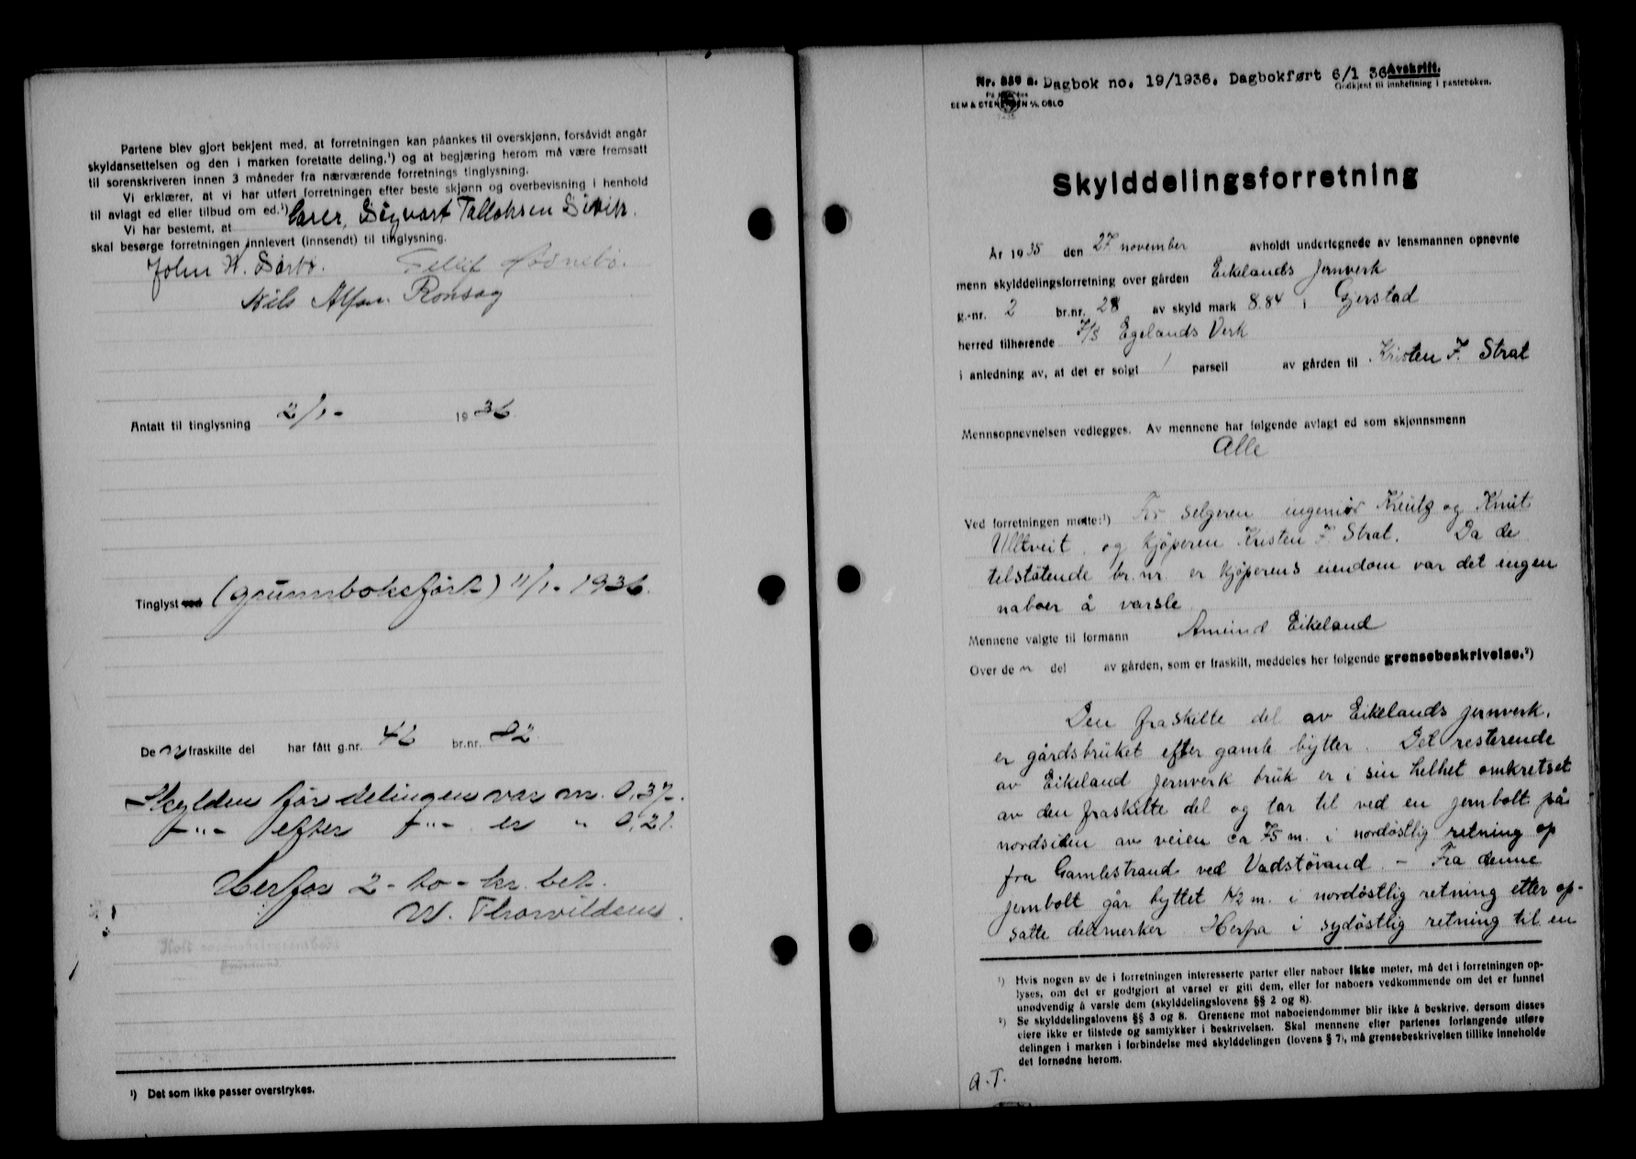 Partene blev gjort bekjent med, at forretningen kan påankes til overskjønn, forsåvidt angår
skyldansettelsen og den i marken foretatte deling,¹) og at begjæring herom må være fremsatt
til sorenskriveren innen 3 måneder fra nærværende forretnings tinglysning.
Vi erklærer, at vi har utført forretningen efter beste skjønn og overbevisning i henhold
til avlagt ed eller tilbud om ed.¹)
Vi har bestemt, at Sigvart Tallaksen
skal besørge forretningen innlevert (innsendt) til tinglysning.
John H. Sørbø.
Nils Alfan Ronsag
Antatt til tinglysning 2/1- 1936
Tinglyst ved (grunnboksført) 11/1- 1936.
De n fraskilte del har fått g.nr. 42 br.nr. 82
Skylden før delingen var m. 0,37.
-"- efter -"- er " 0,21.
Herfor 2- to- kr. bet.
¹) Det som ikke passer overstrykes.
Nr. 850 a. Dagbok no. 19/1936. Dagbokført 6/1 36 Avskrift.
Godkjent til innheftning i panteboken.
SEM & STENERSEN A/S, OSLO
Skylddelingsforretning
År 1935 den 27 november avholdt undertegnede av lensmannen opnevnte
menn skylddelingsforretning over gården Eikelands Jernverk
g.-nr. 2 br.nr. 28 av skyld mark 8.84 i Gjerstad
herred tilhørende I/S Egelands Verk
i anledning av, at det er solgt 1 parsell av gården til Kristen F. Strat
Mennsopnevnelsen vedlegges. Av mennene har følgende avlagt ed som skjønnsmenn
Alle
Ved forretningen møtte:¹) For selgeren ingeniør Kreutz og Knut
Ulltveit, og kjøperen Kristen F. Strat. Da de
tilstøtende br. nr. er kjøperens eiendom var det ingen
naboer å varsle
Mennene valgte til formann Amund Eikeland
Over de n del av gården, som er fraskilt, meddeles her følgende grensebeskrivelse.²)
Den fraskilte del av Eikelands jernverk,
er gårdsbruket efter gamle bytter. Det resterende
av Eikeland jernverk bruk er i sin helhet omkretset
av den fraskilte del og tar til ved en jernbolt på
nordsiden av veien ca 75 m. i nordøstlig retning op
fra Gamlestrand ved Vadstøvand. - Fra denne
jernbolt går byttet 12 m. i nordøstlig retning etter op-
satte delemerker Herfra i sydøstlig retning til en
¹) Hvis nogen av de i forretningen interesserte parter eller naboer ikke møter, må det i forretningen op-
lyses, om det er godtgjort at varsel er gitt dem, eller for naboers vedkommende om det er funnet
unødvendig å varsle dem (skylddelingslovens §§ 2 og 8).
²) Se skylddelingslovens §§ 3 og 8. Grensene mot naboeiendommer blir ikke å beskrive, dersom disses
eiere ikke er tilstede og samtykker i beskrivelsen. Skal mennene efter partenes forlangende utføre
delingen i marken i forbindelse med skylddelingen (lovens § 7), må grensebeskrivelsen tillike inneholde
det fornødne herom.
A.T.